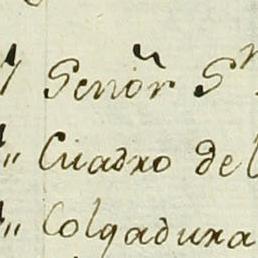 Señor S
Cuadro del
Colgadura